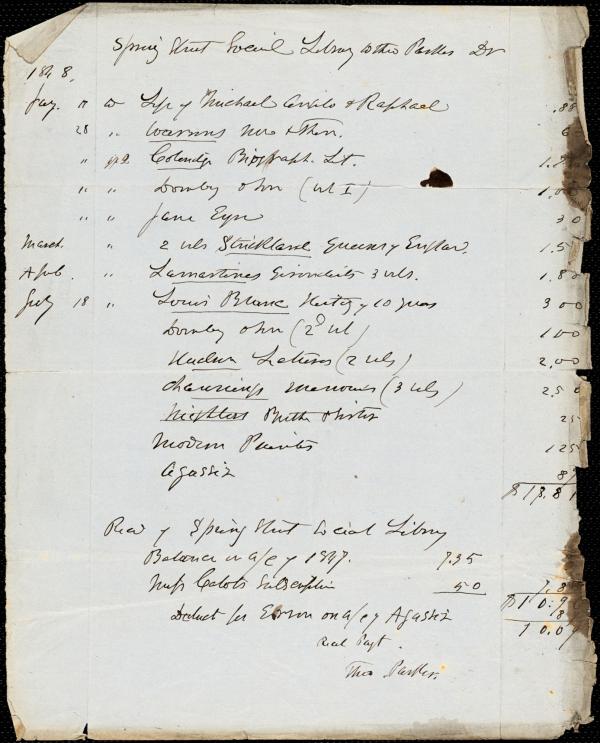 Spring Street Social Library to Theo Parker Dr
1848.
Jany. 11 Life of Michael Angelo & Raphael .88
28 " &
" " Coleridge Biograph. Lit. 1.
" " Dombey & Son (vol I) 1.00
" " Jane Eyre 30
March. " 2 vols Strickland Queens of England. 1.5
Apl. " Lamartines Girondists 3 vols. 1.80
July 18 " Louis Blanc History of 10 years 3 00
Dombey & Son (2d vol) 1 00
Letters (2 vols) 2,00
Channings Memoirs (3 vols) 2.50
25
Modern Painters 1 25
Agassiz 87
$18.81
Recd of Spring Street Social Library
Balance on a/c of 1847. 7.35
Miss Cabots Subscription 50 7.8
$10.9
Deduct for Error on a/c of Agassiz 8
10.0
Recd Payt.
Theo Parker.